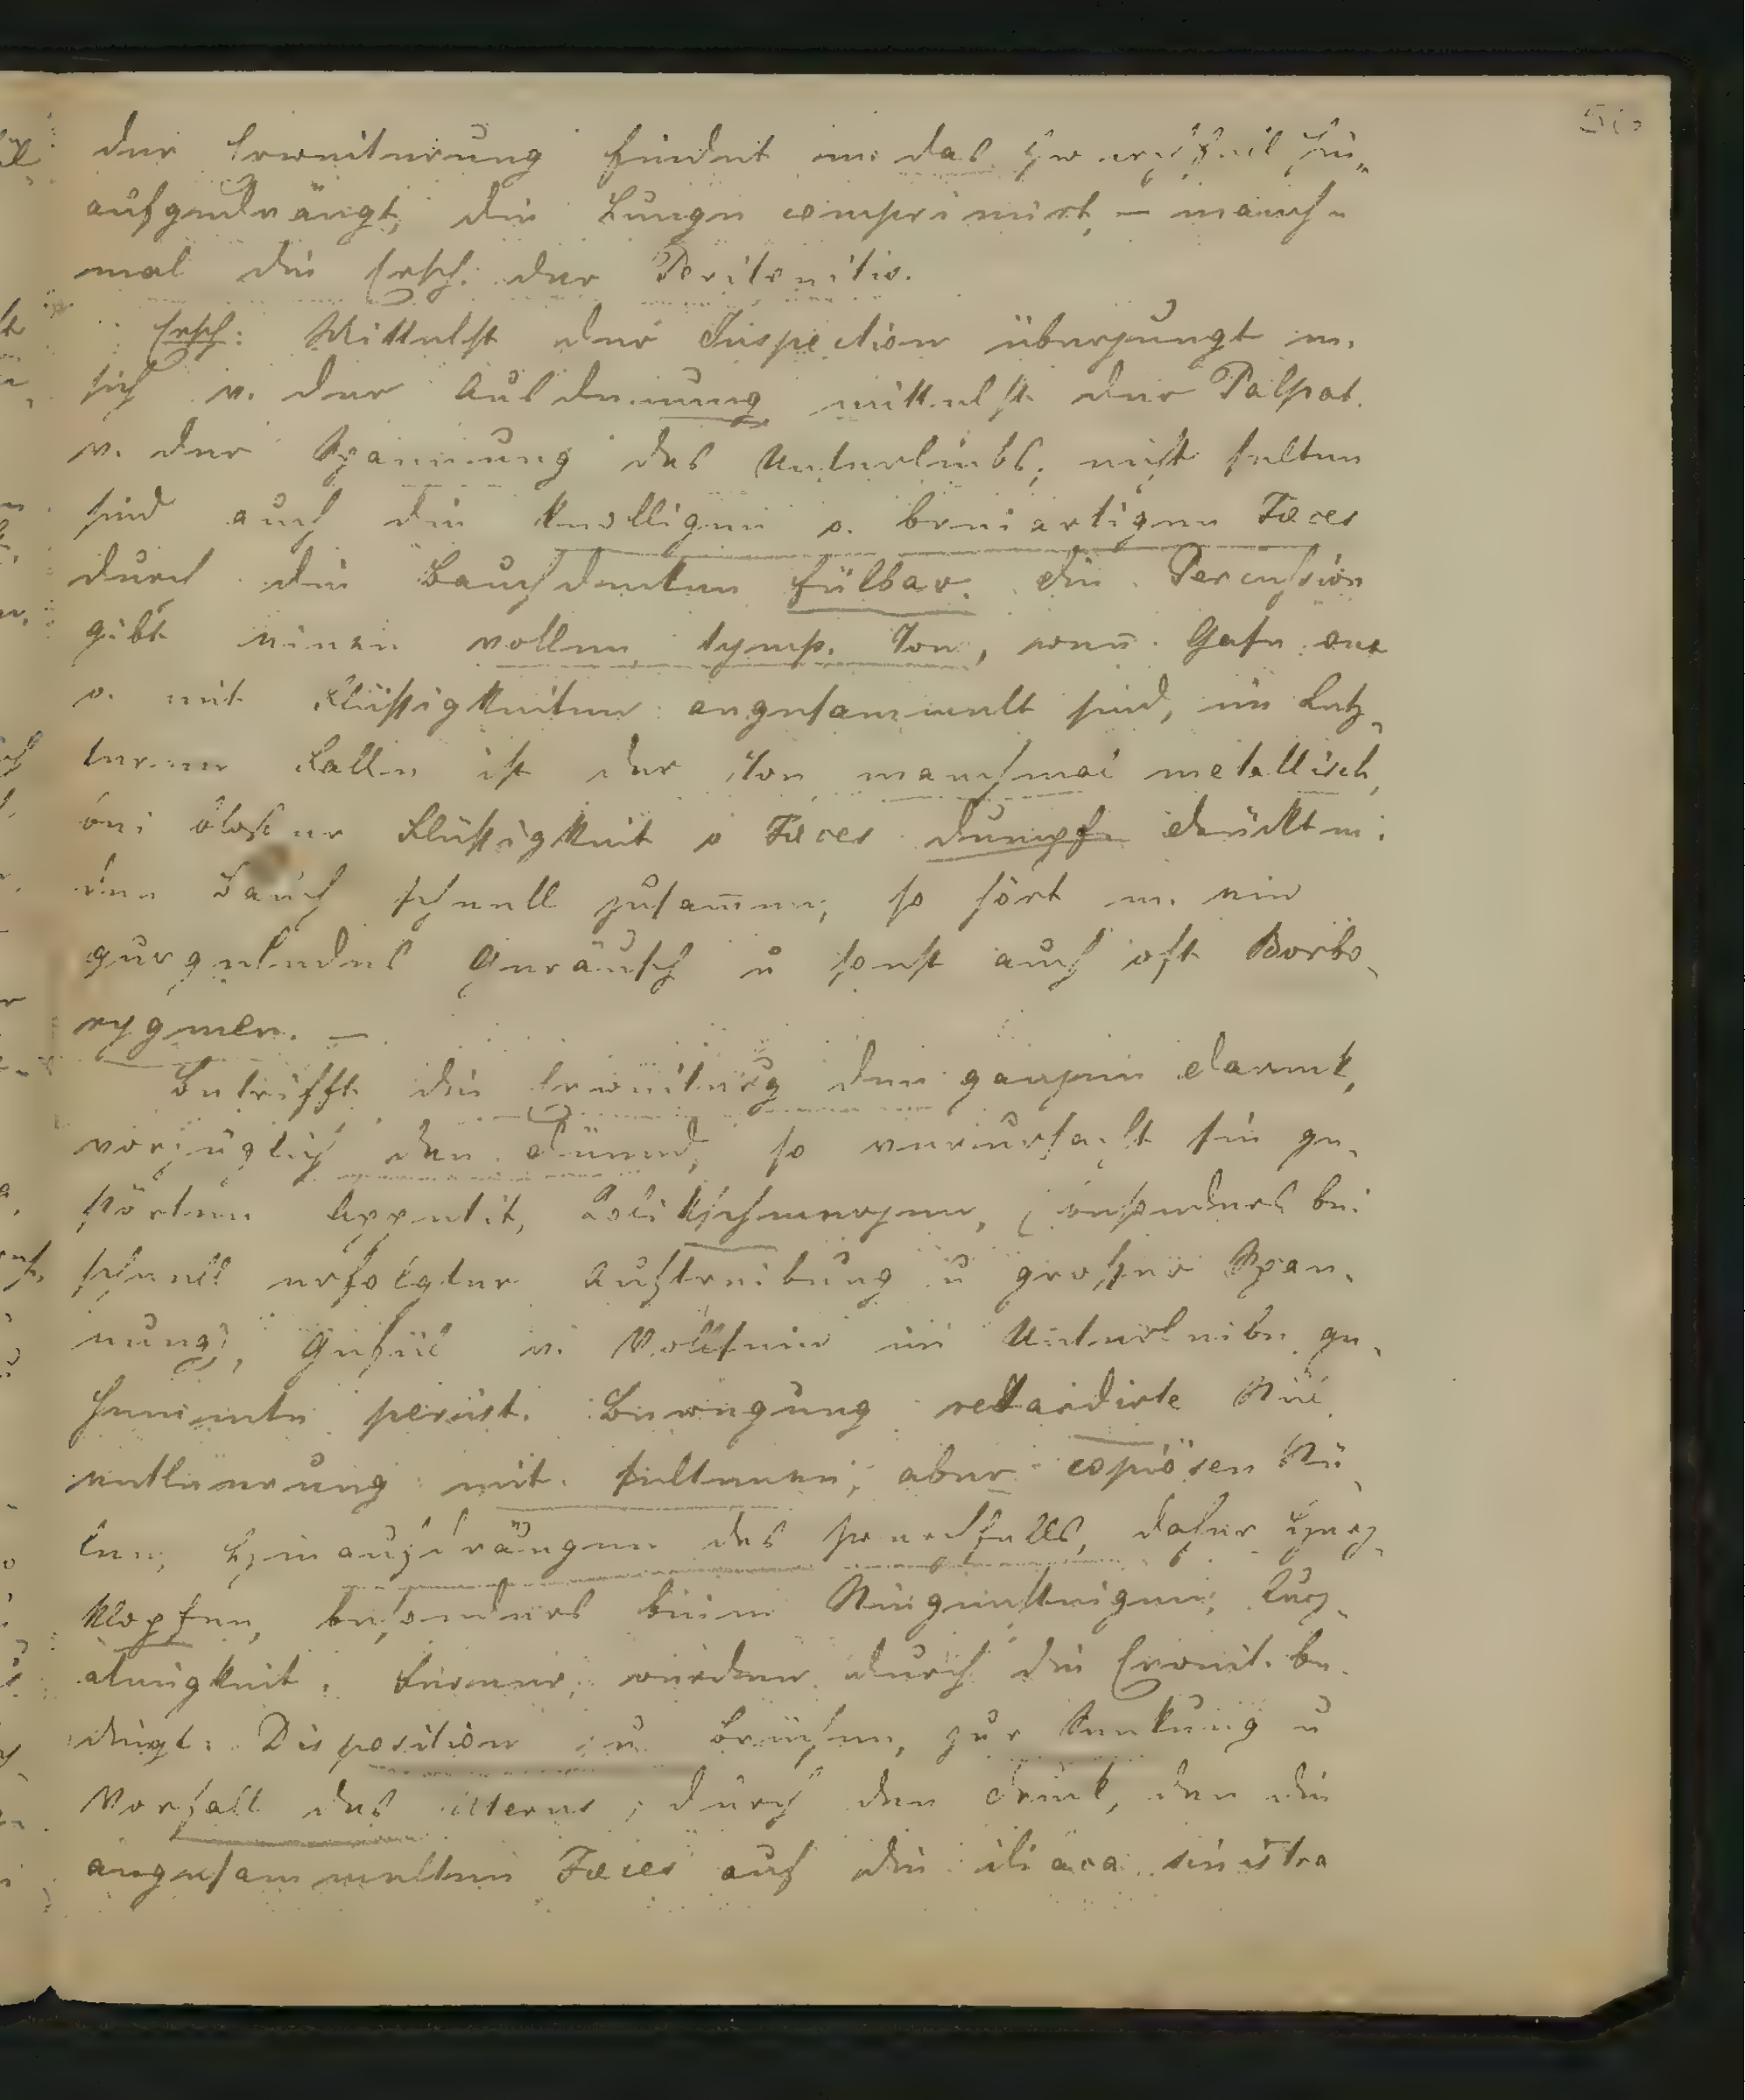 der Erweiterung findet m. das Zwerchfell hin-
aufgedrängt, die Lunge comprimirt, – manch-
mal die Ersch. der Peritonitis.
Ersch: Mittelst der Inspection überzeugt m.
sich v. der Ausdenung mittelst der Palpat.
v. der Spannung des Unterleibs, nicht selten
sind auch die knolligen o. breiartigen Fæces
durch die Bauchdecken fülbar. die Percußion
gibt einen vollen tymp. Ton, wen̄ Gase
o. mit Flüßigkeiten angesammelt sind, im Letz-
teren Falle ist der Ton manchmal metallisch,
bei bloßer Flüßigkeit o Fæces dumpf drückt m.
den Bauch schnell zusam̄en, so hört m. ein
gurgelndes Geräusch u sonst auch oft Borbo-
rygmen. –
Betrifft die Erweiterug den ganzen darmk,
vorzüglich den dünnd, so verursacht sie ge-
störten Appetit, Kolikschmerzen, besonders bei
schnell erfolgter Auftreibung u großer Span-
nung, Gefül v. Vollsein im Unterleibe ge-
hemmte perist. Bewegung retardirte Stul
entleerung mit seltenen, aber copiösen Stü-
len, Hinaufdrängen des Zwerchfells, daher Herz-
klopfen, besonders beim Stiegensteigen, Kurz-
atmigkeit. Ferner, werden durch die Erweit. be-
dingt: Disposition zu Brüchen, zur Senkung u
Vorfall des uterus; durch den druck, den die
angesammelten Fæces auf die iliaca sinistra